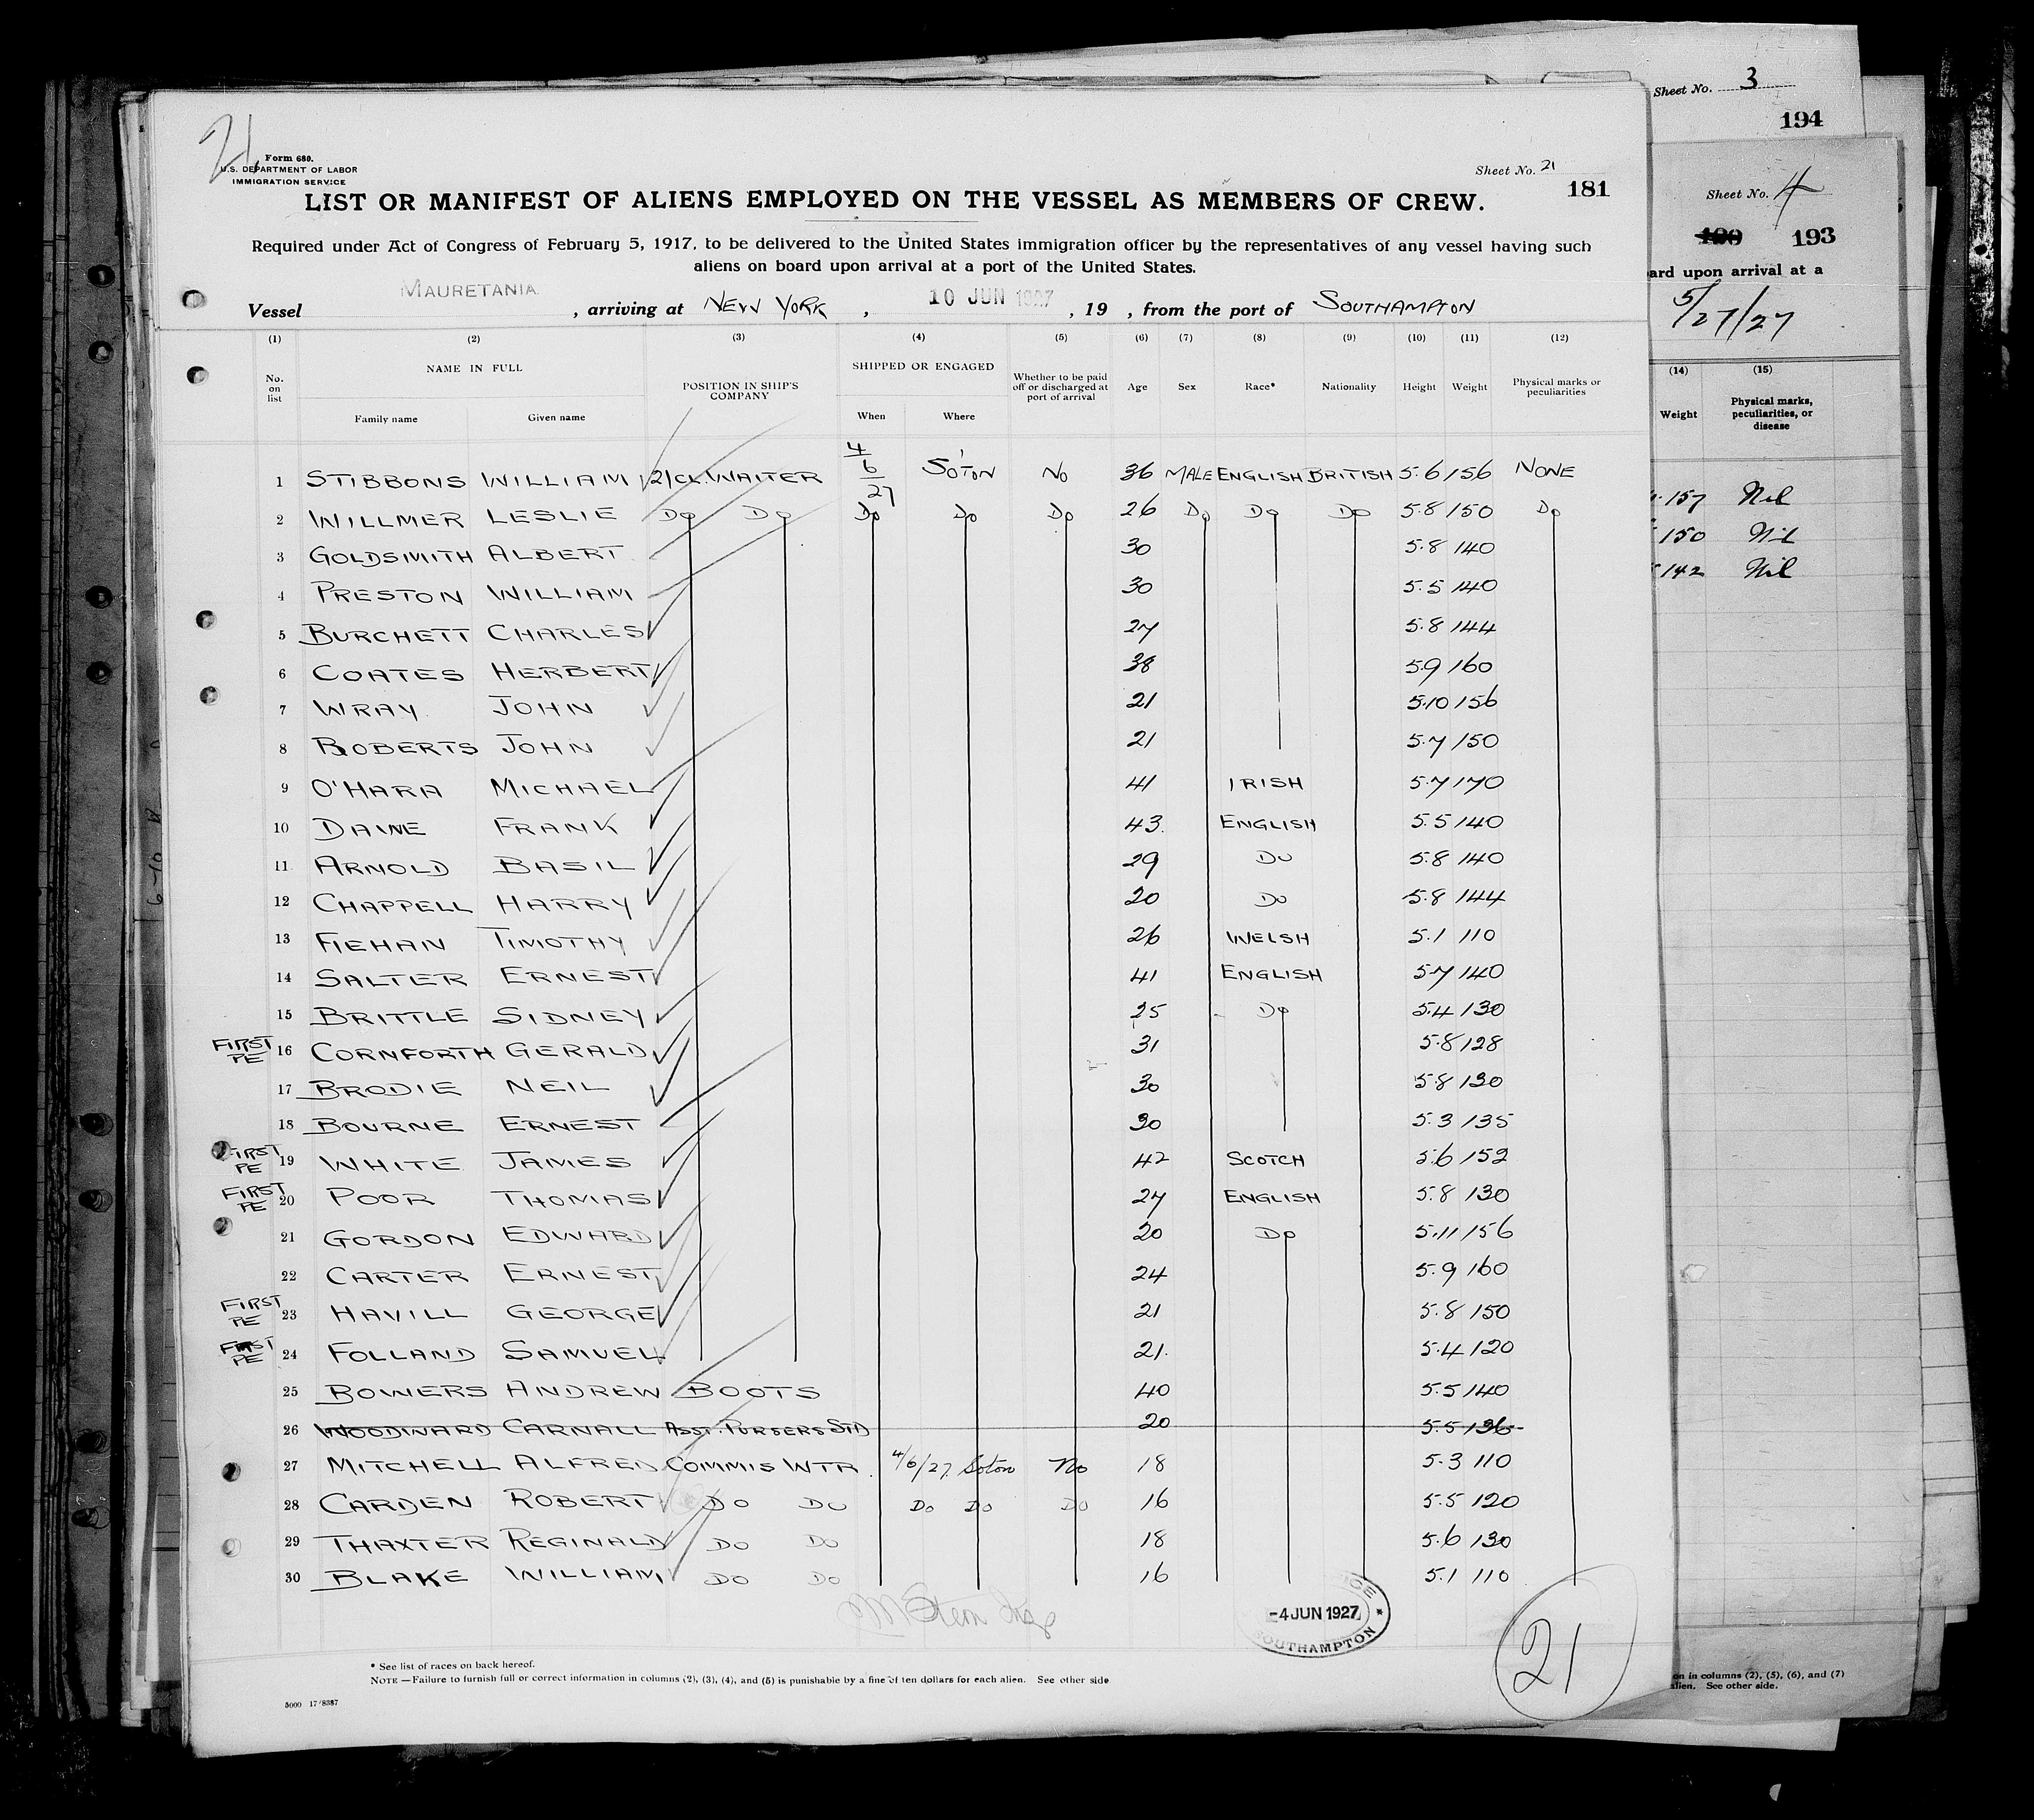 21
Form 680.
U.S. DEPARTMENT OF LABOR
IMMIGRATION SERVICE
Sheet No. 21
181
LIST OR MANIFEST OF ALIENS EMPLOYED ON THE VESSEL AS MEMBERS OF CREW.
Required under Act of Congress of February 5, 1917, to be delivered to the United States immigration officer by the representatives of any vessel having such
aliens on board upon arrival at a port of the United States.
Vessel MAURETANIA, arriving at NEW YORK, 10 JUN 1927, 19 , from the port of SOUTHAMPTON
(1) (2) (3) (4) (5) (6) (7) (8) (9) (10) (11) (12)
No. on list NAME IN FULL Family name Given name POSITION IN SHIP'S COMPANY SHIPPED OR ENGAGED When Where Whether to be paid off or discharged at port of arrival Age Sex Race* Nationality Height Weight Physical marks or peculiarities
1 STIBBONS WILLIAM 2/CL. WAITER 4/6/27 SO'TON NO 36 MALE ENGLISH BRITISH 5.6 156 NONE
2 WILLMER LESLIE DO DO DO DO DO 26 DO DO DO 5.8 150 DO
3 GOLDSMITH ALBERT 30 5.8 140
4 PRESTON WILLIAM 30 5.5 140
5 BURCHETT CHARLES 27 5.8 144
6 COATES HERBERT 38 5.9 160
7 WRAY JOHN 21 5.10 156
8 ROBERTS JOHN 21 5.7 150
9 O'HARA MICHAEL 41 IRISH 5.7 170
10 DAWE FRANK 43. ENGLISH 5.5 140
11 ARNOLD BASIL 29 DO 5.8 140
12 CHAPPELL HARRY 20 DO 5.8 144
13 FIEHAN TIMOTHY 26 WELSH 5.1 110
14 SALTER ERNEST 41 ENGLISH 5.7 140
15 BRITTLE SIDNEY 25 DO 5.4 130
FIRST PE 16 CORNFORTH GERALD 31 5.8 128
17 BRODIE NEIL 30 5.8 130
18 BOURNE ERNEST 30 5.3 135
FIRST PE 19 WHITE JAMES 42 SCOTCH 5.6 152
FIRST PE 20 POOR THOMAS 27 ENGLISH 5.8 130
21 GORDON EDWARD 20 DO 5.11 156
22 CARTER ERNEST 24 5.9 160
FIRST PE 23 HAVILL GEORGE 21 5.8 150
FIRST PE 24 FOLLAND SAMUEL 21. 5.4 120
25 BOWERS ANDREW BOOTS 40 5.5 140
26 WOODWARD CARNALL ASST. PURSERS STD 20 5.5 136
27 MITCHELL ALFRED COMMIS WTR. 4/6/27 Soton No 18 5.3 110
28 CARDEN ROBERT DO DO DO DO DO 16 5.5 120
29 THAXTER REGINALD DO DO 18 5.6 130
30 BLAKE WILLIAM DO DO 16 5.1 110
Stern Insp
-4 JUN 1927
SOUTHAMPTON
21
* See list of races on back hereof.
NOTE.—Failure to furnish full or correct information in columns (2), (3), (4), and (5) is punishable by a fine of ten dollars for each alien. See other side
5000 17/8387
Sheet No. 3
194
Sheet No. 4
193
ard upon arrival at a
5/27/27
(14) (15)
Weight Physical marks, peculiarities, or disease
157 Nil
150 Nil
142 Nil
on in columns (2), (5), (6), and (7)
alien. See other side.